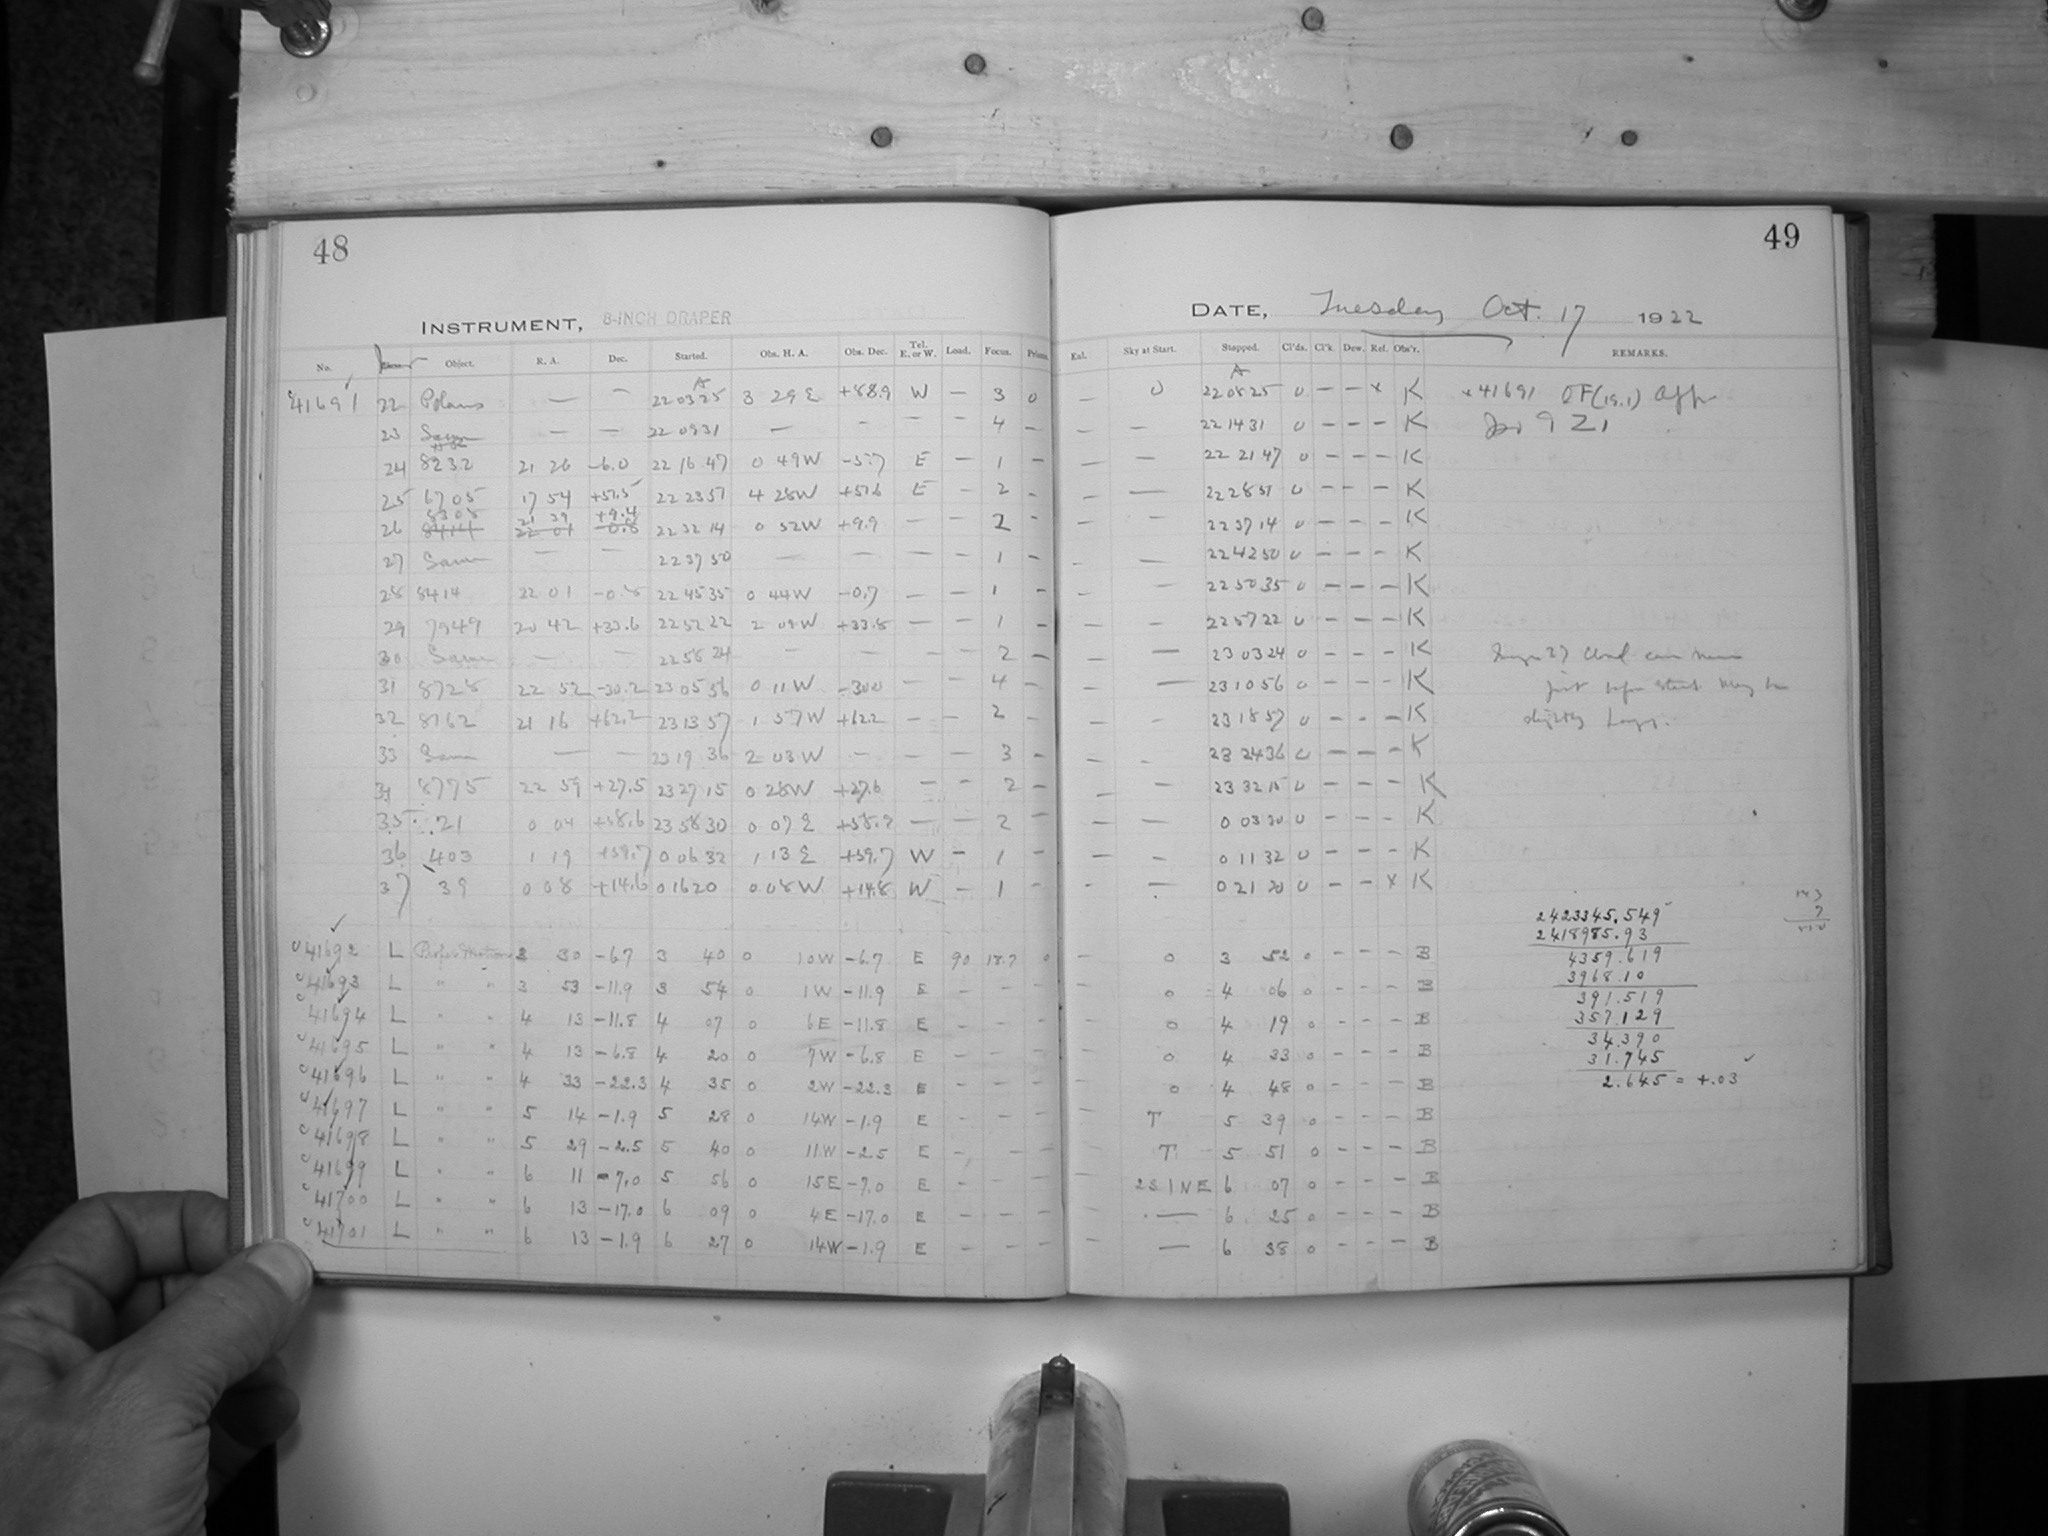 48
49
INSTRUMENT, 8-INCH DRAPER
DATE, Tuesday Oct. 17 1922
No. Object. R. A. Dec. Started. Obs. H. A. Obs. Dec. Tel. E. or W. Load. Focus. Prism. Exl. Sky at Start. Stopped. Cl'ds. Cl'k. Dew. Ref. Obs'r. REMARKS.
A A
41691 22 Polaris — — 22 03 25 3 29 E +88.9 W — 3 0 — 0 22 08 25 0 — — x K x 41691
23 Same — — 22 09 31 — - — — 4 — — — 22 14 31 0 — — — K
24 8232 21 26 -6.0 22 16 47 0 49 W -5.7 E — 1 — — — 22 21 47 0 — — — K
25 6705 17 54 +51.5 22 23 51 4 28 W +51.6 E — 2 — — — 22 28 51 0 — — — K
8308 21 39 +9.4
26 8414 22 01 -0.8 22 32 14 0 52 W +9.9 — — 2 — — — 22 37 14 0 — — — K
27 Same — — 22 37 50 — — — — 1 — — — 22 42 50 0 — — — K
28 8414 22 01 -0.8 22 45 35 0 44 W -0.7 — — 1 — — — 22 50 35 0 — — — K
29 7949 20 42 +33.6 22 52 22 2 09 W +33.8 — — 1 — — — 22 57 22 0 — — — K
30 Same — — 22 58 24 — — — — 2 — — — 23 03 24 0 — — — K
31 8728 22 52 -30.2 23 05 56 0 11 W -30.0 — — 4 — — — 23 10 56 0 — — — K
32 8162 21 16 +62.2 23 13 57 1 57 W +62.2 — — 2 — — — 23 18 57 0 — — — K
slightly
33 Same — — 23 19 36 2 03 W — — — 3 — — — 23 24 36 0 — — — K
34 8775 22 59 +27.5 23 27 15 0 28 W +27.6 — 2 — — — 23 32 15 0 — — — K
35 21 0 04 +58.6 23 58 30 0 07 E +58.7 — — 2 — — — 0 03 30 0 — — — K
36 403 1 19 +59.7 0 06 32 1 13 E +59.7 W — 1 — — — 0 11 32 0 — — — K
37 39 0 08 +14.6 0 16 20 0 08 W +14.8 W — 1 — - — 0 21 20 0 — — x K
2423345.549
2418985.93
4359.619
3968.10
391.519
357.129
34.390
31.745
2.645 = +.03
41692 L Proper Motions 3 30 -6.7 3 40 0 10W -6.7 E 90 18.7 0 - 0 3 52 0 - - - B
41693 L " " 3 53 -11.9 3 54 0 1W -11.9 E - - - - 0 4 06 0 - - - B
41694 L " " 4 13 -11.8 4 07 0 6E -11.8 E - - - - 0 4 19 0 - - - B
41695 L " " 4 13 -6.8 4 20 0 7W -6.8 E - - - - 0 4 33 0 - - - B
41696 L " " 4 33 -22.3 4 35 0 2W -22.3 E - - - - 0 4 48 0 - - - B
41697 L " " 5 14 -1.9 5 28 0 14W -1.9 E - - - - T 5 39 0 - - - B
41698 L " " 5 29 -2.5 5 40 0 11W -2.5 E - - - - T 5 51 0 - - - B
41699 L " " 6 11 -7.0 5 56 0 15E -7.0 E - - - - 2S1NE 6 07 0 - - - B
41700 L " " 6 13 -17.0 6 09 0 4E -17.0 E - - - - — 6 25 0 - - - B
41701 L " " 6 13 -1.9 6 27 0 14W -1.9 E - - - - — 6 38 0 - - - B